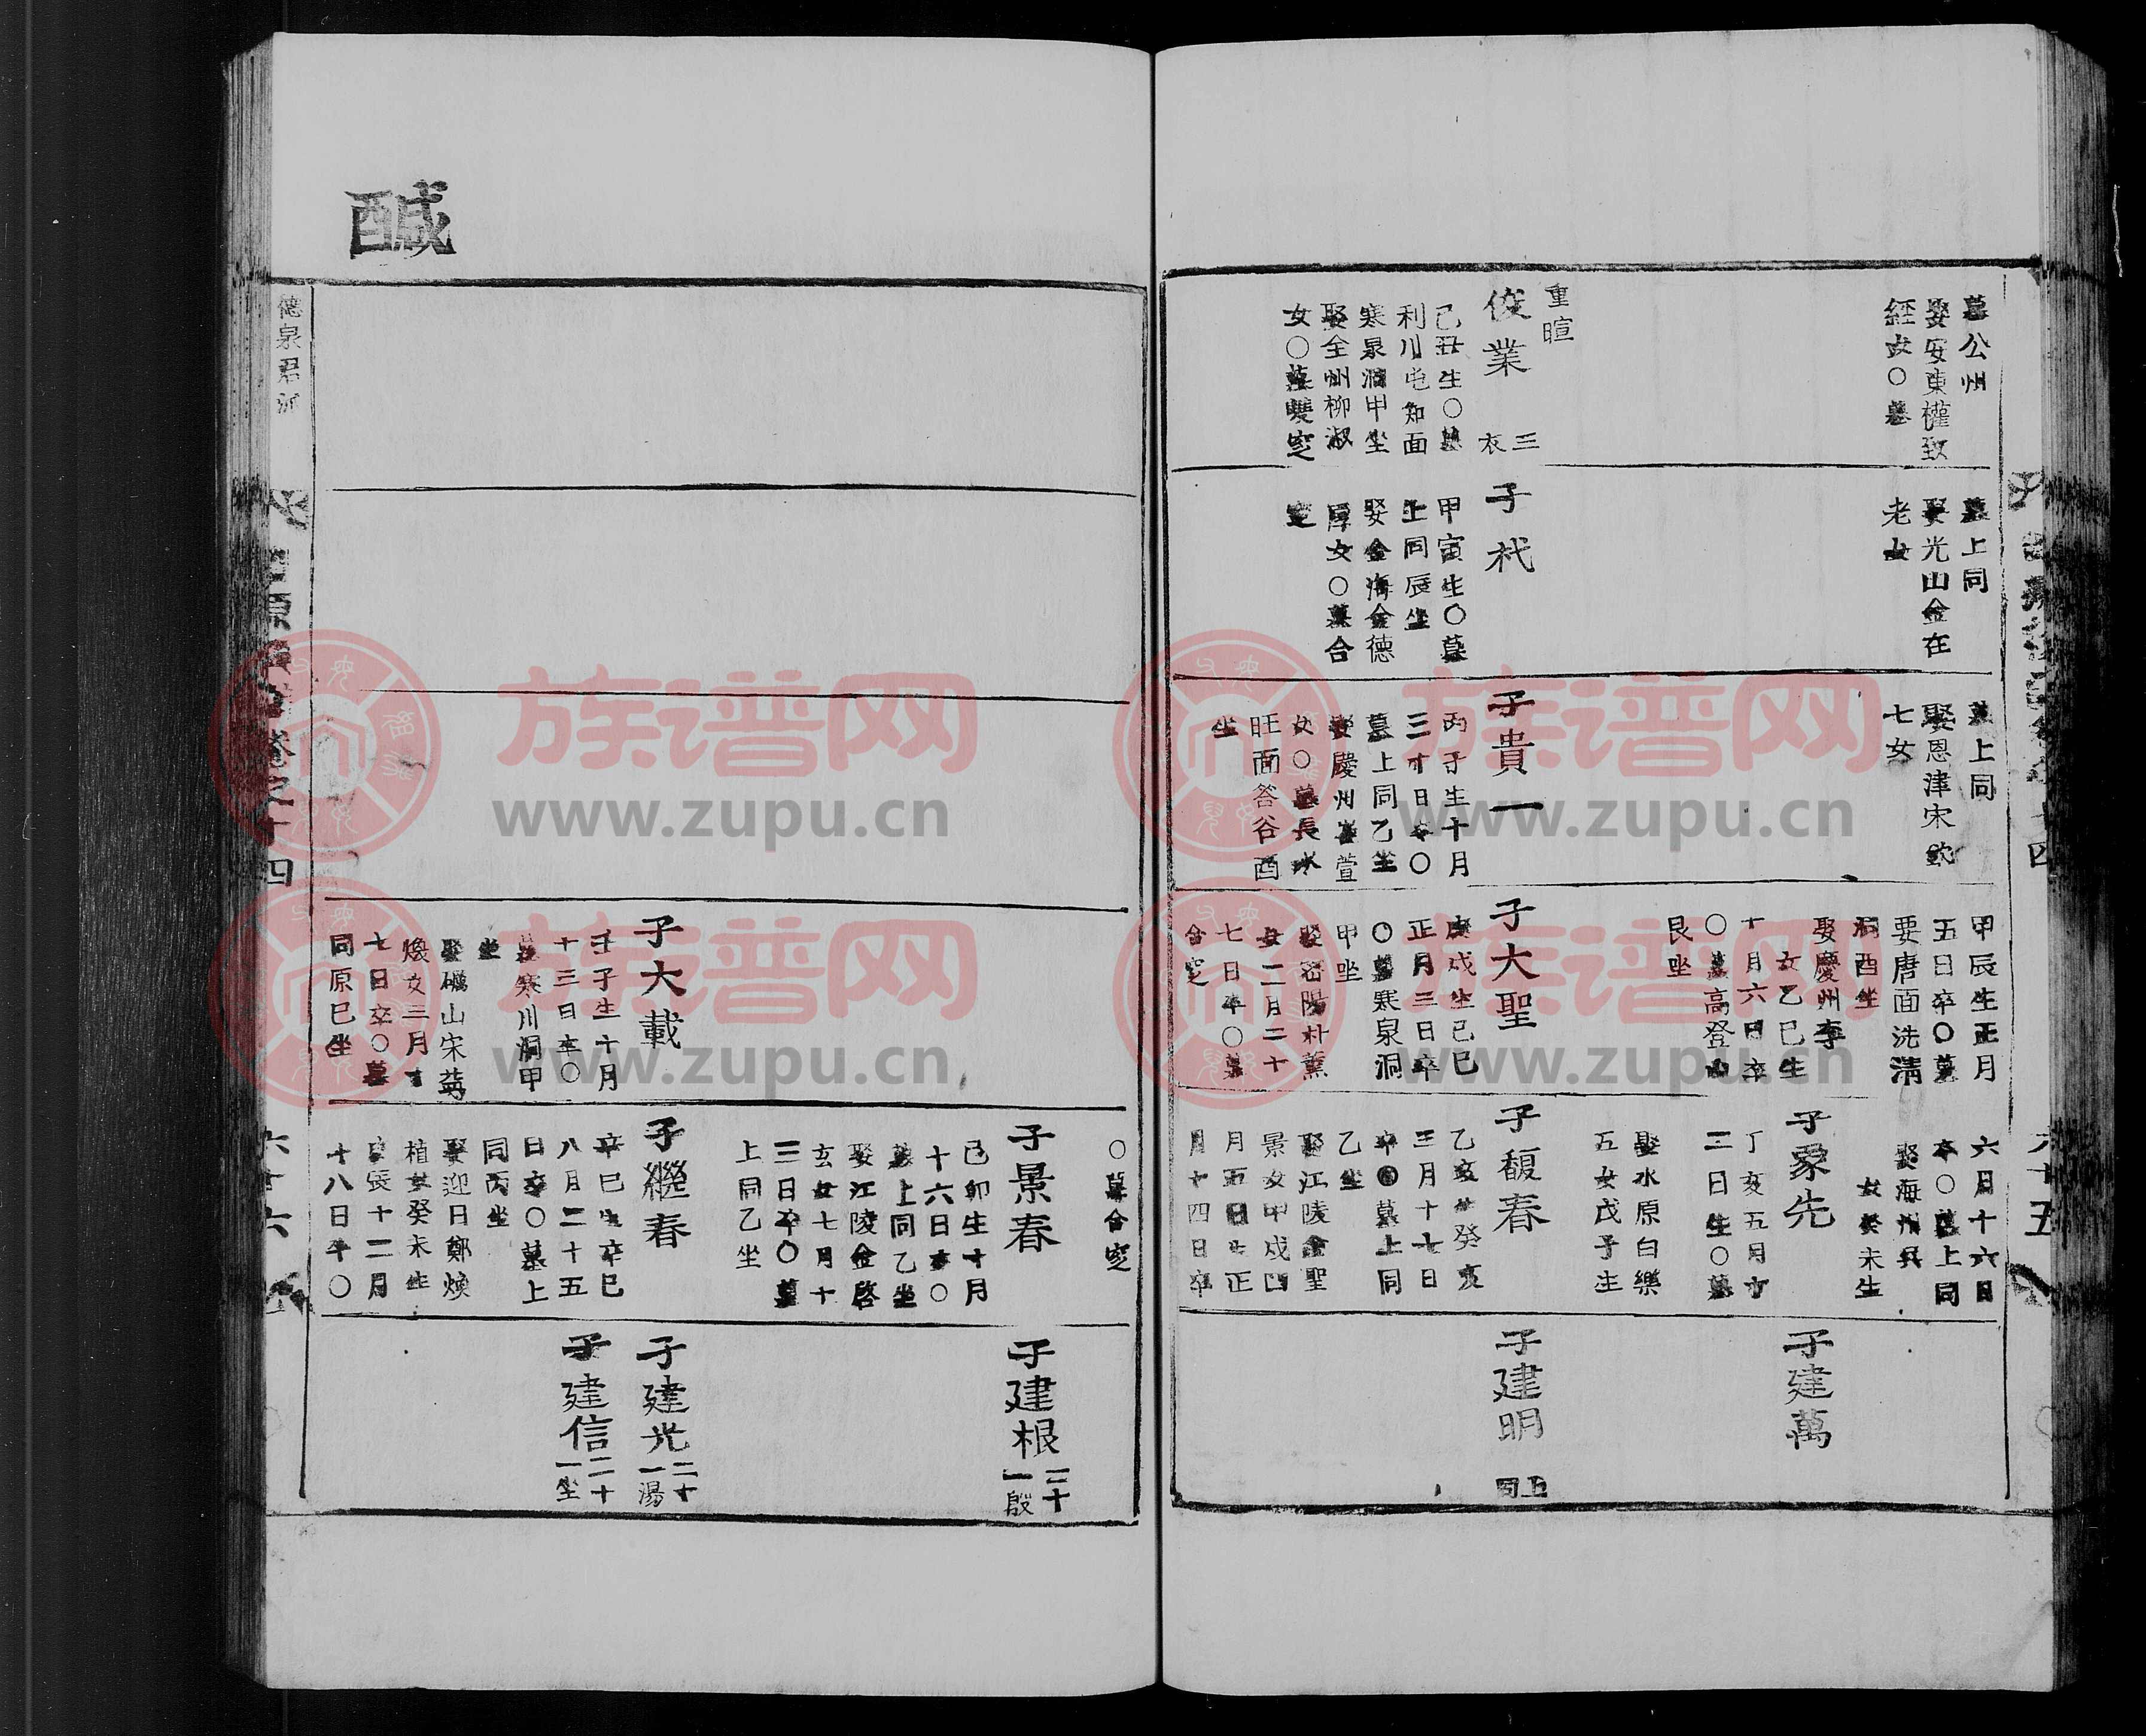 墓公州
娶安東權致
經女○墓
重暄
俊業
三
衣
己丑生○墓
利川屯知面
寒泉洞甲坐
娶全州柳淑
女○墓雙窆
墓上同
娶光山金在
老女
子杙
甲寅生○墓
上同辰坐
娶金海金德
厚女○墓合
窆
墓上同
娶恩津宋欽
七女
子貴一
丙子生十月
三十日卒○
墓上同乙坐
娶慶州崔萱
女○墓長水
旺面答谷酉
坐
甲辰生正月
五日卒○墓
要唐面洗清
洞酉坐
娶慶州李
女乙巳生
十月六日卒
○墓高登山
艮坐
子大聖
庚戌生己巳
正月三日卒
○墓寒泉洞
甲坐
娶密陽朴薰
女二月二十
七日卒○墓
合窆
六月十六日
卒○墓上同
娶海州吳
女癸未生
子象先
丁亥五月十
二日生○墓
娶水原白樂
五女戊子生
子馥春
乙亥生癸亥
三月十七日
卒○墓上同
乙坐
娶江陵金聖
景女甲戌四
月五日生正
月十四日卒
子建萬
子建明
上
同
六十五
醎
德泉君派
卷之十四
六十六
子大載
壬子生十月
十三日卒○
墓寒川洞甲
坐
娶礪山宋
煥女三月十
七日卒○墓
同原巳坐
○墓合窆
子景春
己卯生十月
十六日卒○
墓上同乙坐
娶江陵金啓
玄女七月十
三日卒○墓
上同乙坐
子繼春
辛巳生辛巳
八月二十五
日卒○墓上
同丙坐
娶迎日鄭煥
植女癸未生
十二月
十八日卒○
子建根
二十
一殷
子建光
二十
一湯
子建信
二十
一坐
族谱网
www.zupu.cn
族谱网
www.zupu.cn
族谱网
www.zupu.cn
族谱网
www.zupu.cn